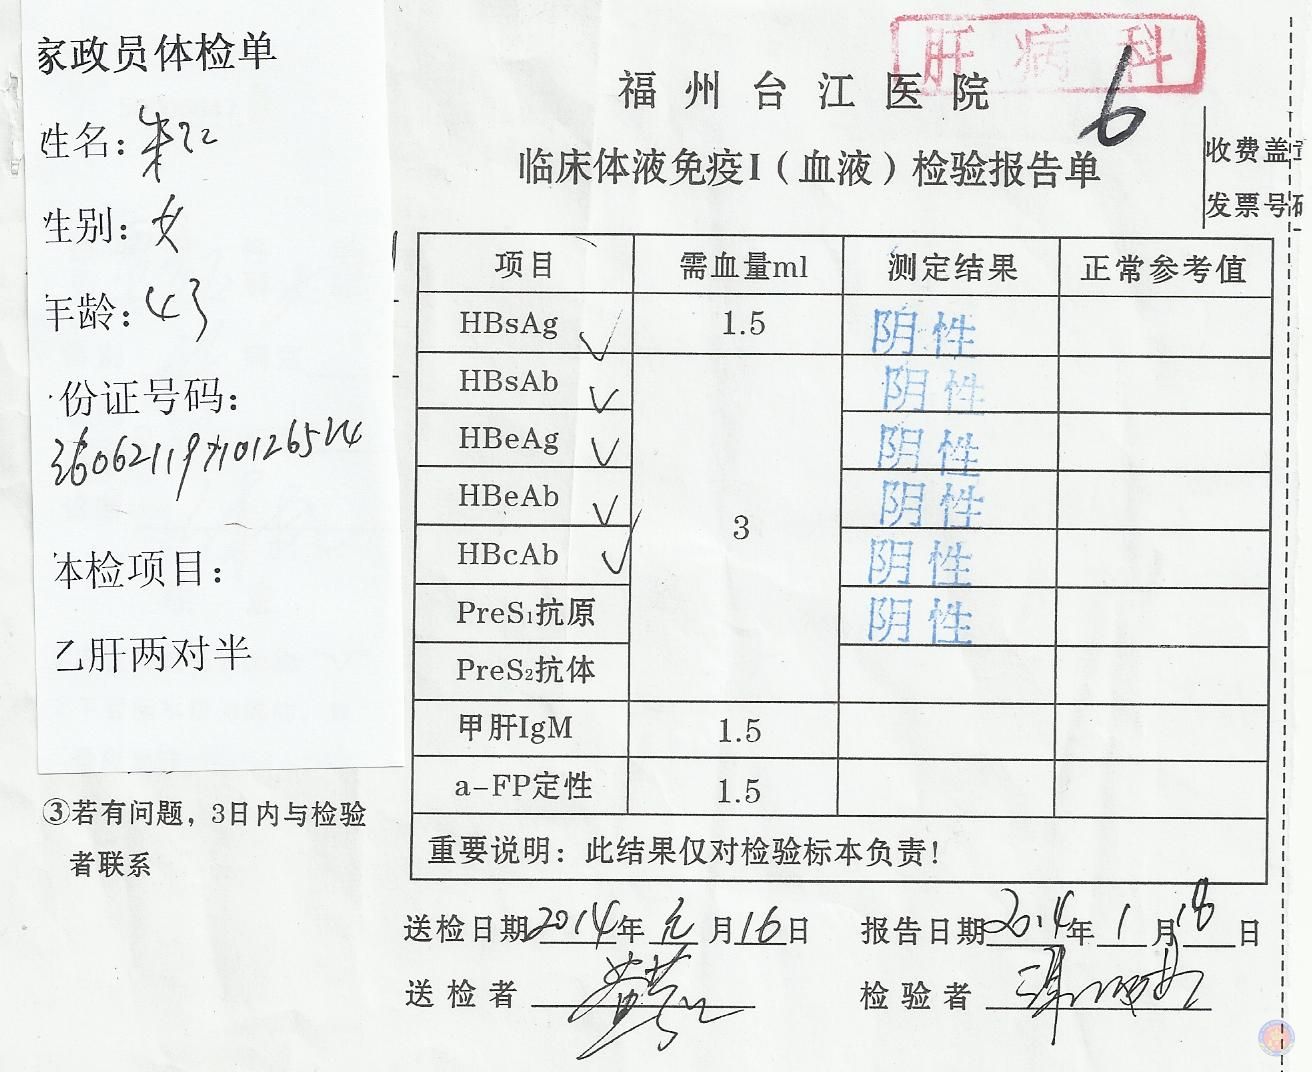 家政员体检单
姓名：朱红
性别：女
年龄：43
份证号码：
体检项目：
乙肝两对半
③若有问题，3日内与检验
者联系
肝病科
福州台江医院
6
临床体液免疫I（血液）检验报告单
收费盖章
发票号码
项目 需血量ml 测定结果 正常参考值
HBsAg 1.5 阴性
HBsAb 阴性
HBeAg 阴性
HBeAb 3 阴性
HBcAb 阴性
PreS₁抗原 阴性
PreS₂抗体
甲肝IgM 1.5
a-FP定性 1.5
重要说明：此结果仅对检验标本负责！
送检日期2014年元月16日 报告日期2014年1月18日
送检者 检验者